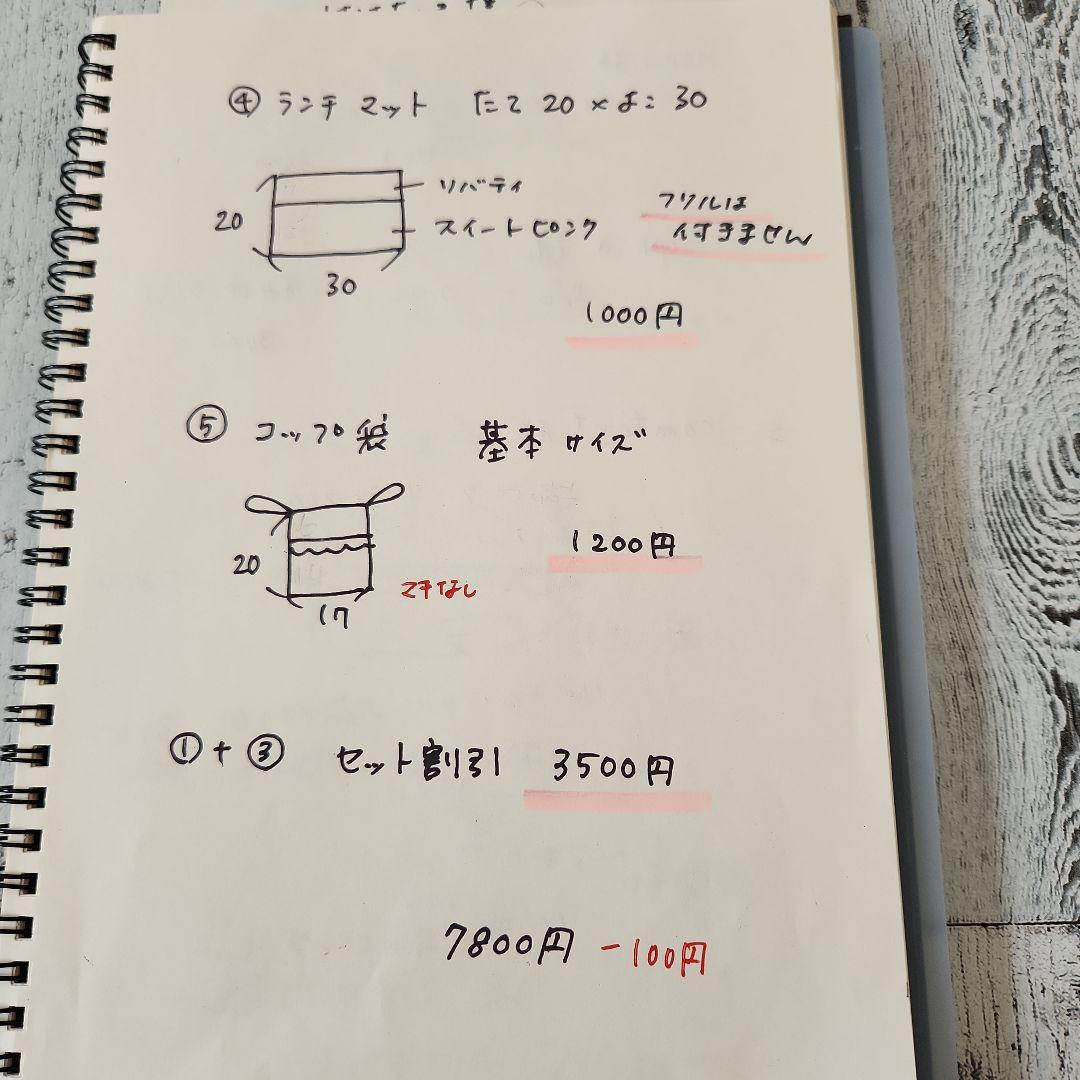 ④ ランチマット たて 20 × よこ 30
リバティ
スイートピンク
フリルは
付きません
20
30
1000円
⑤ コップ袋 基本サイズ
20
17
マチなし
1200円
①+③ セット割引 3500円
7800円 -100円